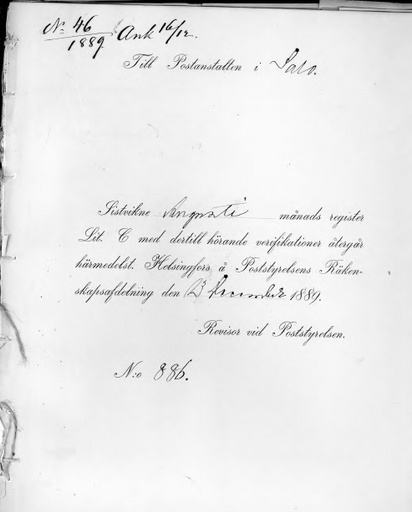 No 46
1889 Ank 16/12.
Till Postanstalten i Salo.
Sistvikne Augusti månads register
Lit. C med dertill hörande verifikationer återgår
härmedelst. Helsingfors å Poststyrelsens Räken-
skapsafdelning den 13 December 1889.
Revisor vid Poststyrelsen.
N:o 886.